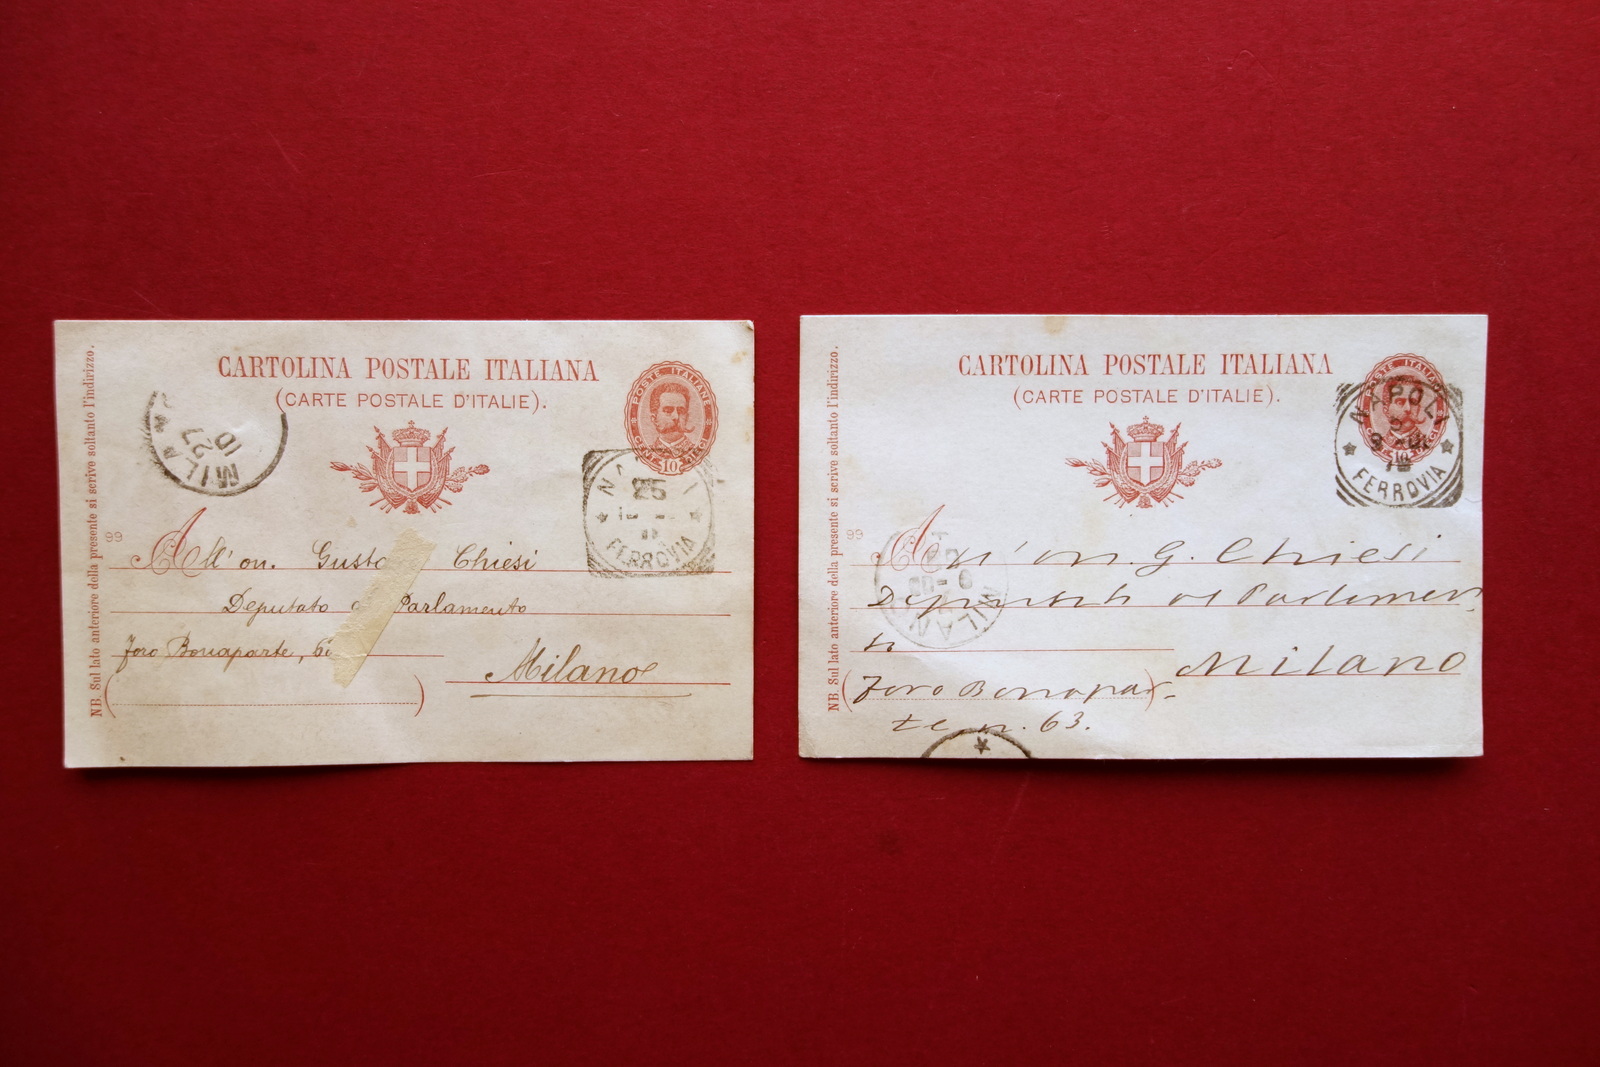 NB. Sul lato anteriore della presente si scrive soltanto l'indirizzo.
CARTOLINA POSTALE ITALIANA
(CARTE POSTALE D'ITALIE).
POSTE ITALIANE
CENT. 10 DIECI
MILAN
10
27
25
FERROVIA
99
All'on. Gusto Chiesi
Deputato Parlamento
Foro Bonaparte, 6
Milano
NB. Sul lato anteriore della presente si scrive soltanto l'indirizzo.
CARTOLINA POSTALE ITALIANA
(CARTE POSTALE D'ITALIE).
POSTE ITALIANE
NAPOLI
FERROVIA
99
MILAN
All'on. G. Chiesi
Deputato al Parlamen-
to
Milano
Foro Bonapar-
te n. 63.